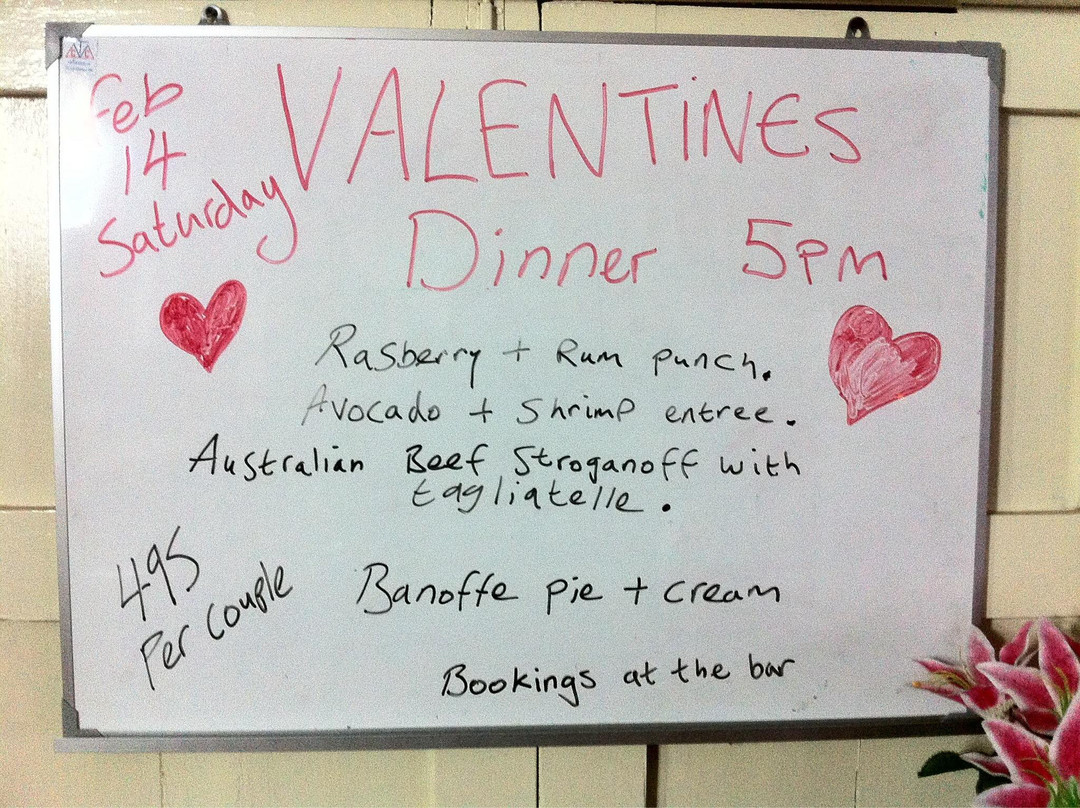 Feb
14
Saturday
VALENTINES
Dinner 5pm
Rasberry + Rum punch.
Avocado + Shrimp entree.
Australian Beef Stroganoff with
tagliatelle.
495
Per couple
Banoffe pie + cream
Bookings at the bar